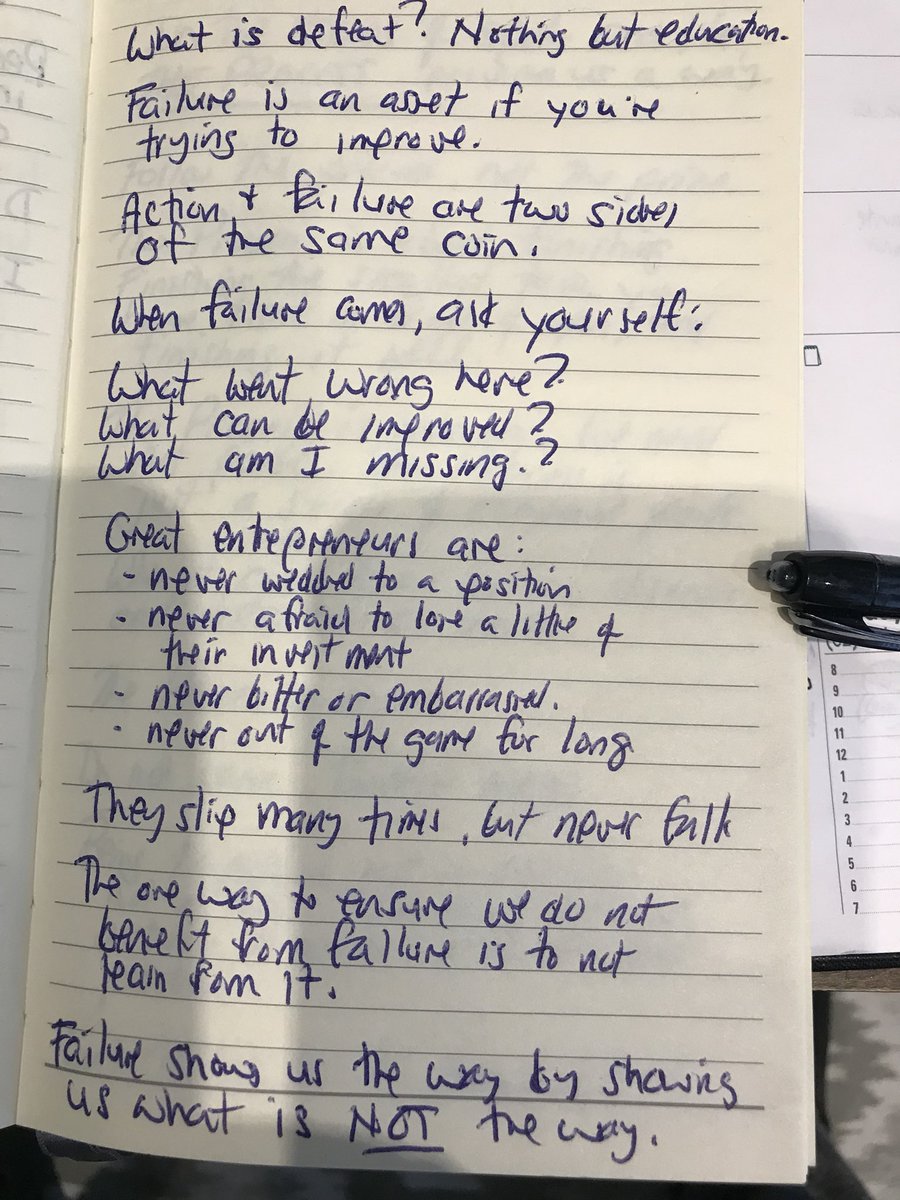 What is defeat? Nothing but education.
Failure is an asset if you're
trying to improve.
Action + failure are two sides
of the same coin.
When failure comes, ask yourself:
What went wrong here?
What can be improved?
What am I missing.?
Great entrepreneurs are:
- never wedded to a position
- never afraid to lose a little of
their investment
- never bitter or embarrassed.
- never out of the game for long
They slip many times, but never fall
The one way to ensure we do not
benefit from failure is to not
learn from it.
Failure shows us the way by showing
us what is NOT the way.
8
9
10
11
12
1
2
3
4
5
6
7